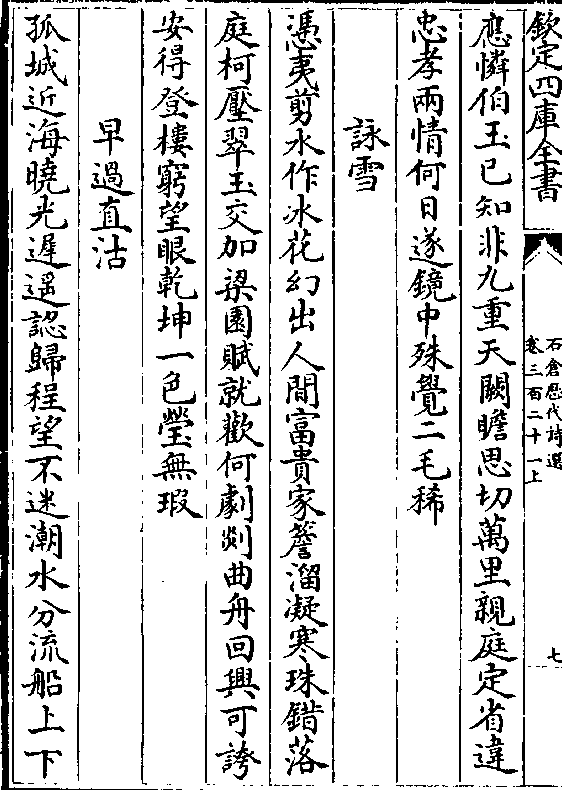 欽定四庫全書
石倉歷代詩選
卷三百二十一上
七
應憐伯玉已知非九重天闕瞻思切萬里親庭定省違
忠孝兩情何日遂鏡中殊覺二毛稀
詠雪
憑夷剪水作冰花幻出人間富貴家簷溜凝寒珠錯落
庭柯壓翠玉交加梁園賦就歡何劇剡曲舟回興可誇
安得登樓窮望眼乾坤一色瑩無瑕
早過直沽
孤城近海曉光遲遥認歸程望不迷潮水分流船上下